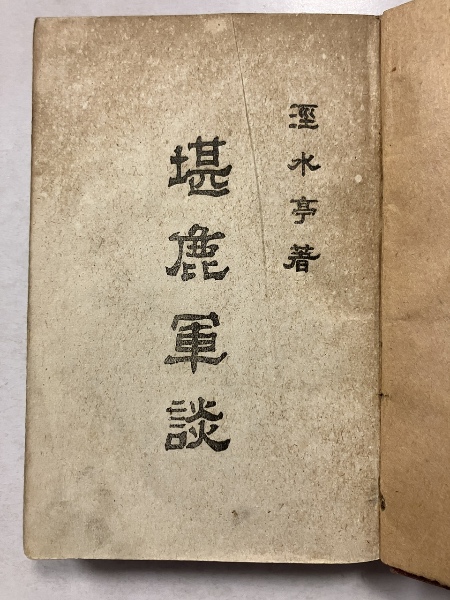 涇水亭著
堪鹿軍談